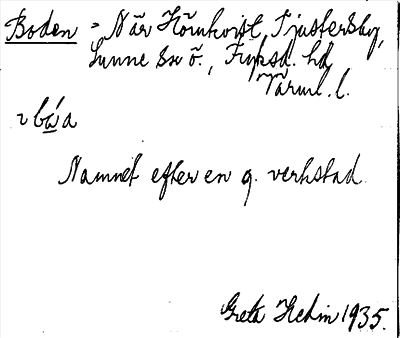 Boden - När Hörnkvist, Tjustersby,
Sunne sn ö., Fryksd. hd
Värml. l.
Namnet efter en g. verkstad.
Greta Hedin 1935.